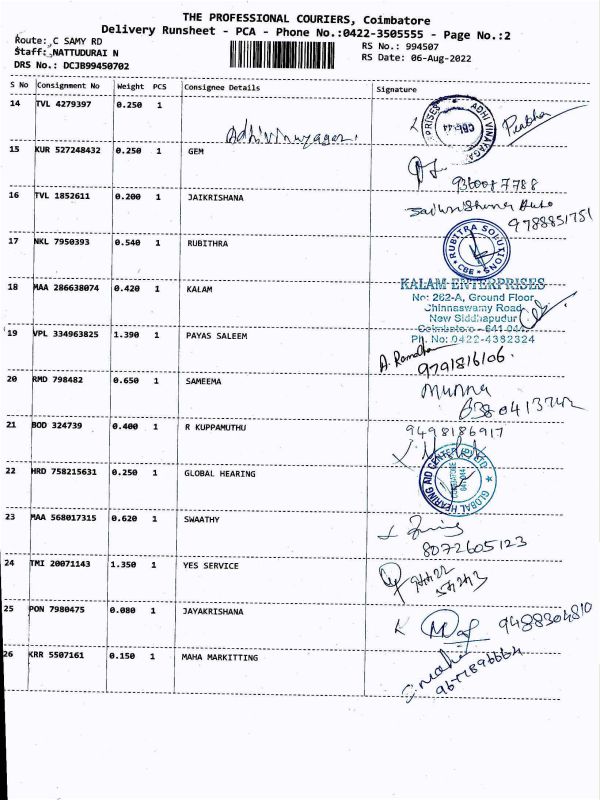 THE PROFESSIONAL COURIERS, Coimbatore
Delivery Runsheet - PCA - Phone No.:0422-3505555 - Page No.:2
Route: C SAMY RD
Staff: NATTUDURAI N
DRS No.: DCJB99450702
RS No.: 994507
RS Date: 06-Aug-2022
S No Consignment No Weight PCS Consignee Details Signature
14 TVL 4279397 0.250 1
Adhivinayagar. Prabha
15 KUR 527248432 0.250 1 GEM
16 TVL 1852611 0.200 1 JAIKRISHANA
9788851751
17 NKL 7950393 0.540 1 RUBITHRA
RUBITRA SOLUTIONS
CBE
18 MAA 286638074 0.420 1 KALAM
KALAM ENTERPRISES
No: 262-A, Ground Floor
Chinnaswamy Road
New Siddhapudur
Coimbatore - 641 044
Ph. No: 0422-4382324
19 VPL 334963825 1.390 1 PAYAS SALEEM
9791816106.
20 RMD 798482 0.650 1 SAMEEMA
Munna
21 BOD 324739 0.400 1 R KUPPAMUTHU
9498186917
22 HRD 758215631 0.250 1 GLOBAL HEARING
GLOBAL HEARING AID CENTER
23 MAA 568017315 0.620 1 SWAATHY
8072605123
24 TMI 20071143 1.350 1 YES SERVICE
25 PON 7980475 0.080 1 JAYAKRISHANA
9488304810
26 KRR 5507161 0.150 1 MAHA MARKITTING